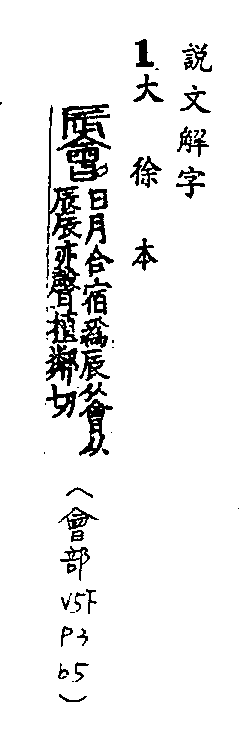 説文解字
1大徐本
日月合宿爲辰从會从
辰辰亦聲植鄰切
（會部V5F P3 b5）